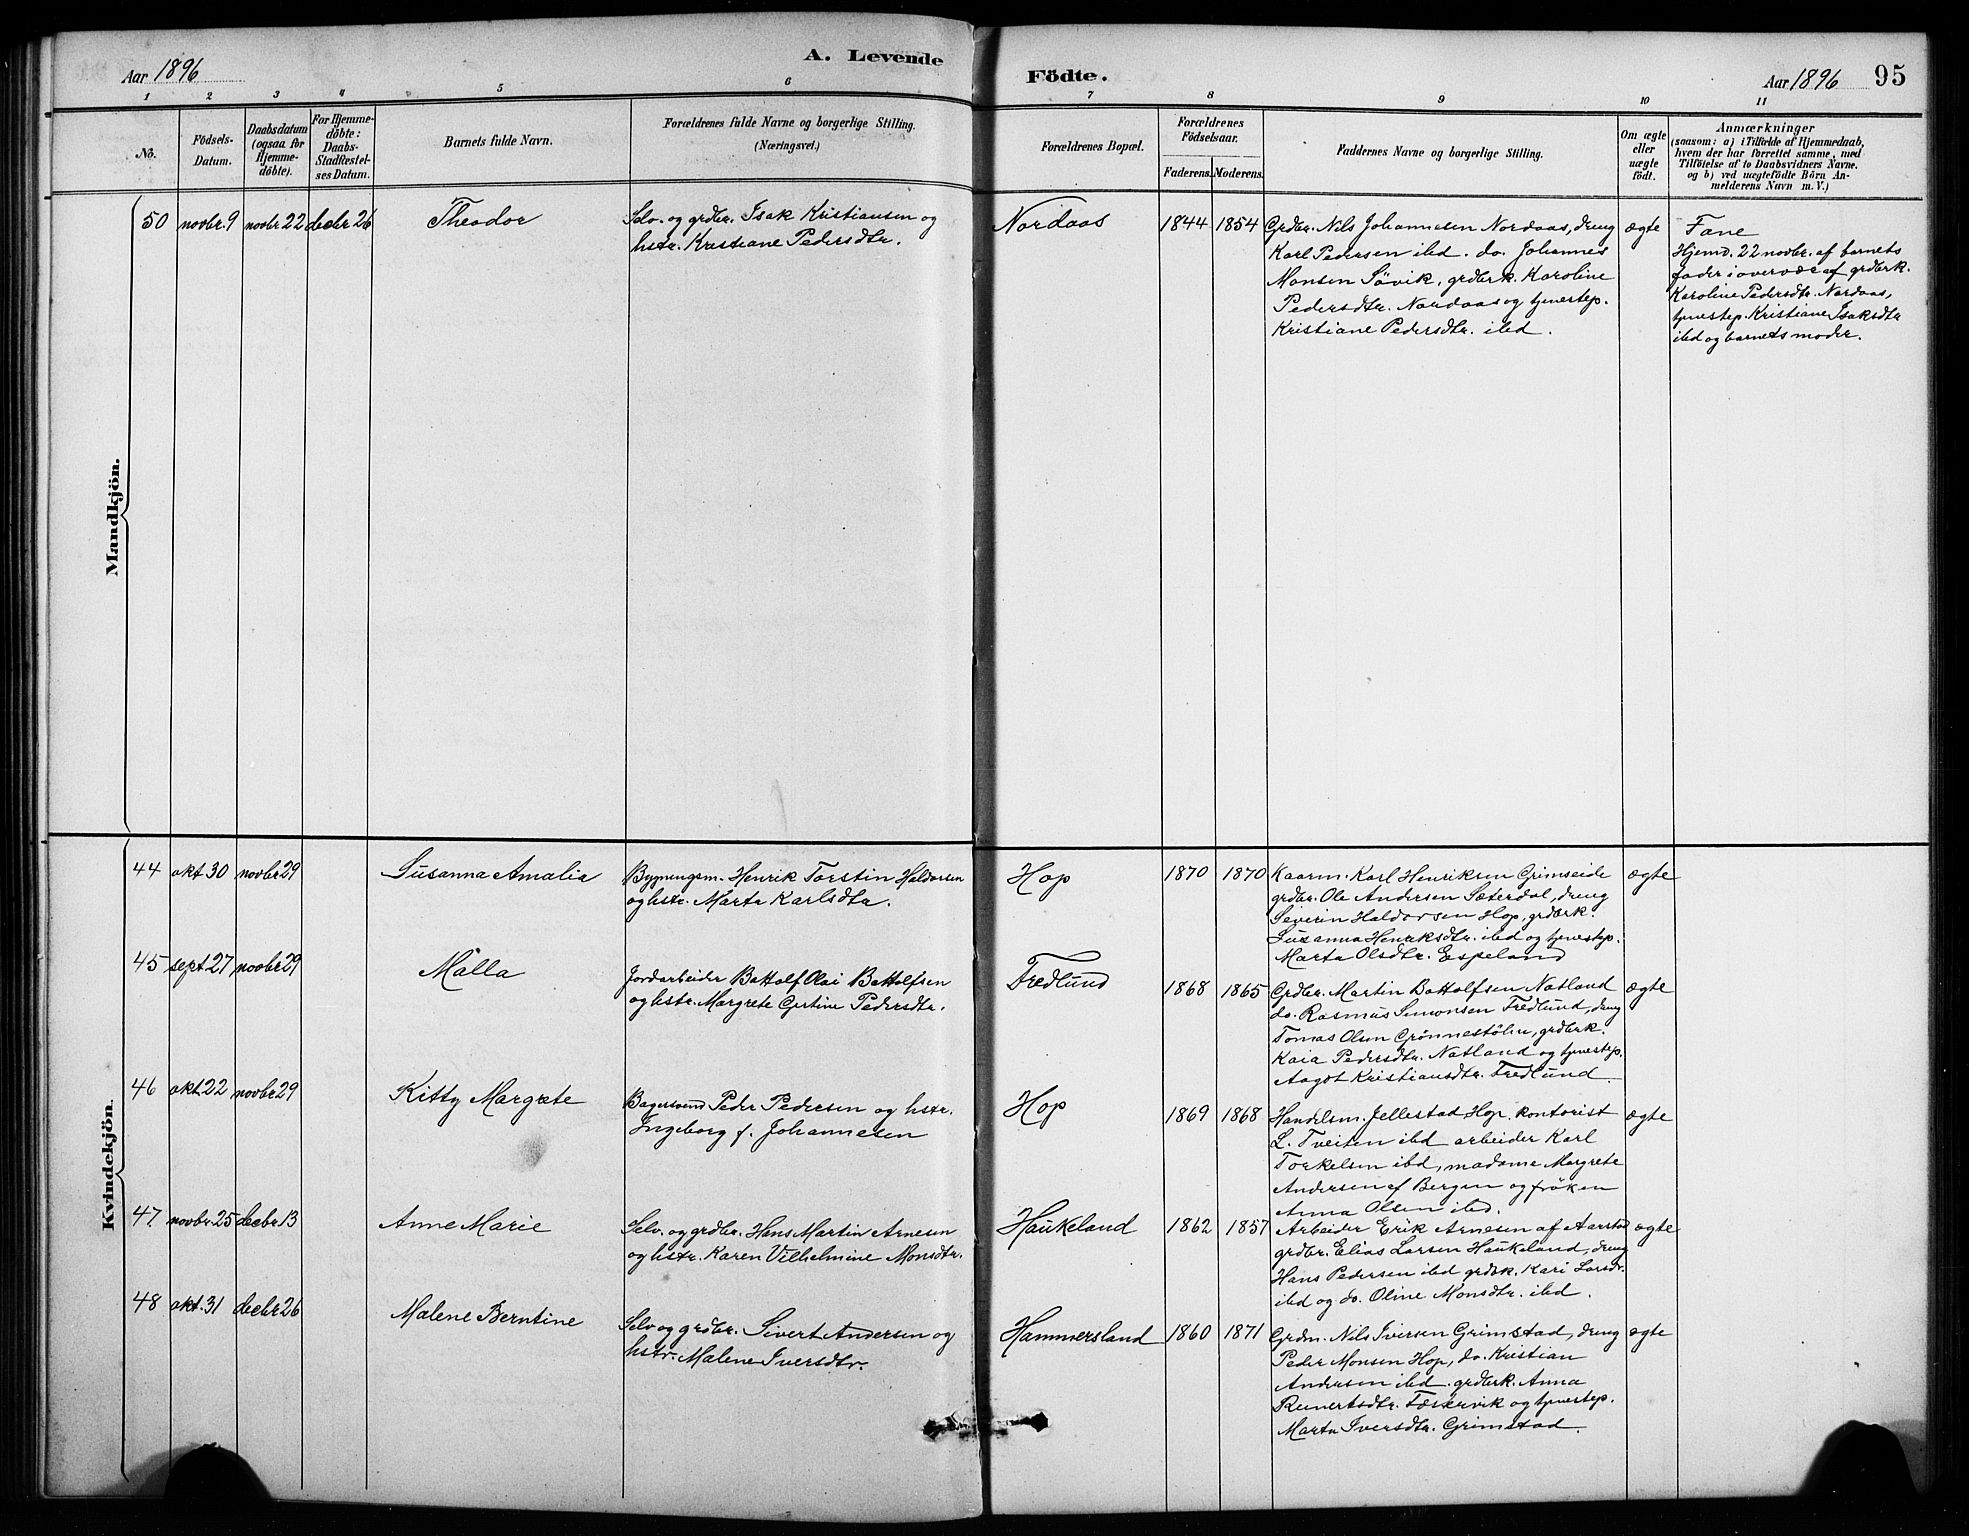 Aar 1896
A. Levende
Födte.
Aar 1896
95
1
2
3
4
5
6
7
8
9
10
11
No.
Födsels-
Datum.
Daabsdatum
(ogsaa for
Hjemme-
döbte).
For Hjemme-
döbte:
Daabs-
Stadfæstel-
ses Datum.
Barnets fulde Navn.
Forældrenes fulde Navne og borgerlige Stilling.
(Næringsvei.)
Forældrenes Bopæl.
Forældrenes
Födselsaar.
Faderens.
Moderens.
Faddernes Navne og borgerlige Stilling.
Om ægte
eller
uægte
födt.
Anmærkninger
(saasom: a) i Tilfælde af Hjemmedaab,
hvem der har forrettet samme, med
Tilföielse af to Daabsvidners Navne.
og b) ved uægtefödte Börn An-
melderens Navn m. V.)
Mandkjön.
50
novbr. 9
novbr 22
decbr 26
Theodor
Selv. og grdbr. Isak Kristiansen og
hstr. Kristiane Pedersdtr.
Nordaas
1844
1854
Grdbr. Nils Johannesen Nordaas, dreng
Karl Pedersen ibd. do. Johannes
Monsen Sövik, grdbrk. Karoline
Pedersdtr. Nordaas og tjenestep.
Kristiane Pedersdtr. ibd.
ægte
Fane
Hjemd. 22 novbr. af barnets
fader i overvær af grdbrk.
Karoline Pedersdtr. Nordaas,
tjenestep. Kristiane Isaksdtr
ibd og barnets moder.
Kvindekjön.
44
okt 30
novbr 29
Susanna Amalia
Bygningsm. Henrik Torstin Haldorsen
og hstr. Marta Karlsdtr.
Hop
1870
1870
Kaarm. Karl Henriksen Grimseide
grdbr. Ole Andersen Sæterdal, dreng
Severin Haldorsen Hop, grdbrk.
Susanna Henriksdtr. ibd og tjenestep.
Marta Olsdtr. Espeland
ægte
45
sept 27
novbr 29
Malla
Jordarbeider Bottolf Olai Bottolfsen
og hstr. Margrete Gjertine Pedersdtr.
Fredlund
1868
1865
Grdbr. Martin Bottolfsen Natland
do. Rasmus Simonsen Fredlund, dreng
Tomas Olsen Grönnestölen, grdbrk.
Kaia Pedersdtr. Natland og tjenestep.
Aagot Kristiansdtr. Fredlund.
ægte
46
okt 22
novbr 29
Kitty Margrete
Bagersvend Peder Pedersen og hstr.
Ingeborg f. Johannesen
Hop
1869
1868
Handelsm. Jellestad Hop, kontorist
L. Tveiten ibd arbeider Karl
Torkelsen ibd, madame Margrete
Andersen af Bergen og fröken
Anna Olsen ibd.
ægte
47
novbr. 25
decbr 13
Anne Marie
Selv. og grdbr. Hans Martin Arnesen
og hstr. Karen Vilhelmine Monsdtr.
Haukeland
1862
1857
Arbeider Erik Arnesen af Aarstad
grdbr. Elias Larsen Haukeland, dreng
Hans Pedersen ibd grdbrk. Kari Larsdr.
ibd og do. Oline Monsdtr. ibd.
ægte
48
okt. 31
decbr 26
Malene Berntine
Selv og grdbr. Sivert Andersen og
hstr. Malene Iversdtr.
Hammersland
1860
1871
Grdm. Nils Iversen Grimstad, dreng
Peder Monsen Hop, do. Kristian
Andersen ibd. grdbrk. Anna
Reinertsdtr. og tjenestep.
Marta Iversdtr. Grimstad.
ægte